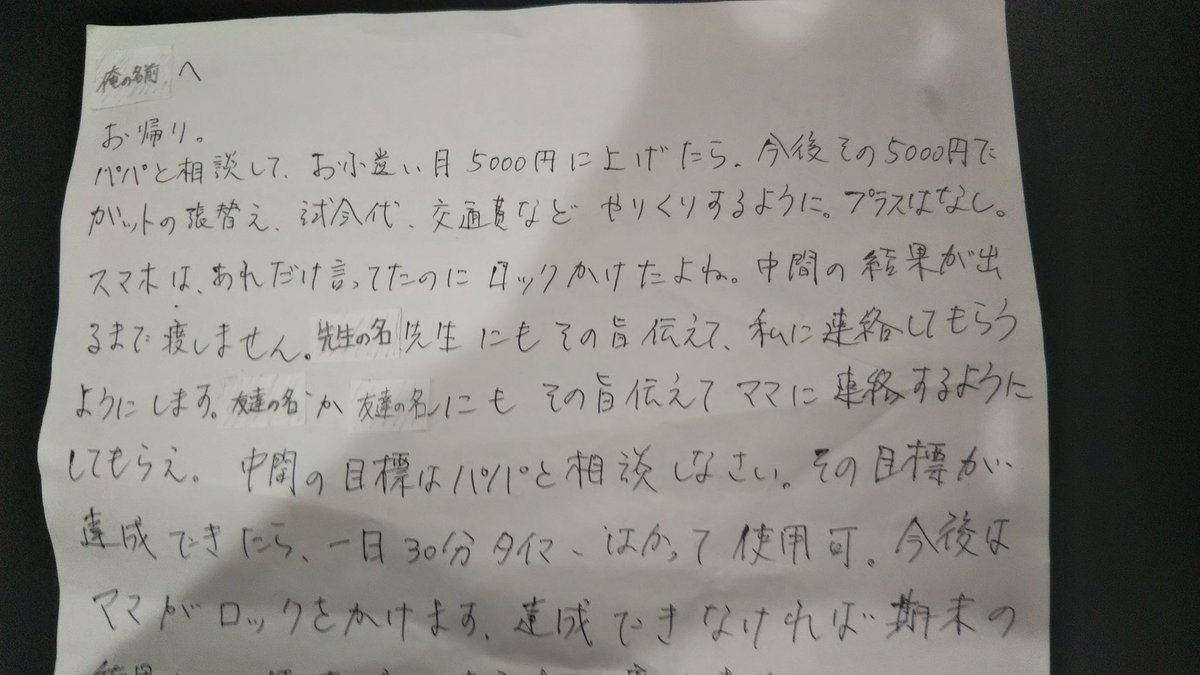 俺の名前 へ
お帰り。
パパと相談して、お小遣い月5000円に上げたら、今後その5000円で
ガットの張替え、試合代、交通費など やりくりするように。プラスはなし。
スマホは、あれだけ言ってたのに ロックかけたよね。中間の 結果が出
るまで渡しません。先生の名 先生 にも その旨伝えて、私に連絡してもらう
ようにします。友達の名 か 友達の名 にも その旨伝えて ママに 連絡するように
してもらえ。中間の目標はパパと相談しなさい。その目標が、
達成できたら、一日30分タイマーはかって 使用可。今後は
ママがロックをかけます。達成できなければ期末の
結果